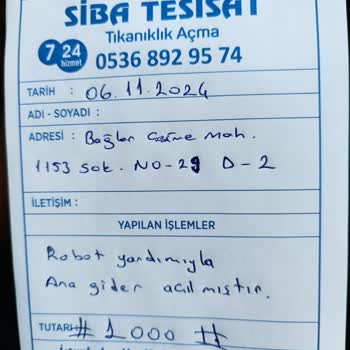 SİBA TESİSAT
Tıkanıklık Açma
7/24 hizmet 0536 892 95 74
TARİH : 06.11.2024
ADI - SOYADI :
ADRESİ : Bağlar Mah.
1153 Sok. NO-29 D-2
İLETİŞİM :
YAPILAN İŞLEMLER
Robot yardımıyla
Ana gider açılmıştır.
TUTARI # 1000 #